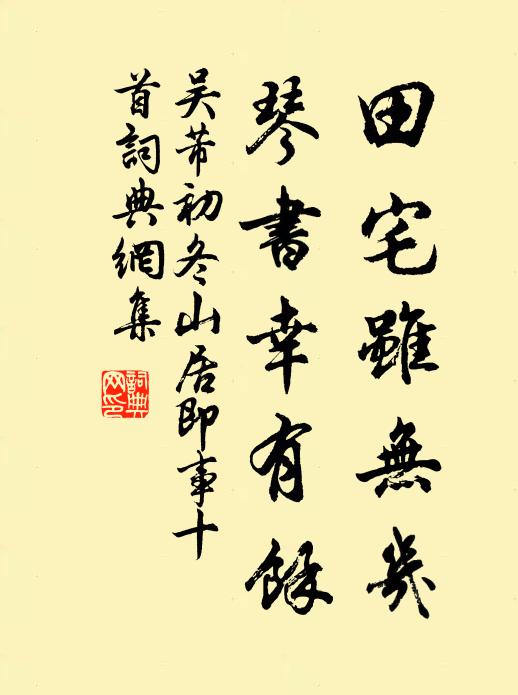 田宅雖無幾
琴書幸有餘
吴芾初冬山居即事十
首詞典網集
詞典网印